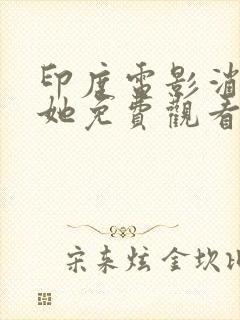 印度電影消
她免費觀看
宋来炫金坎比